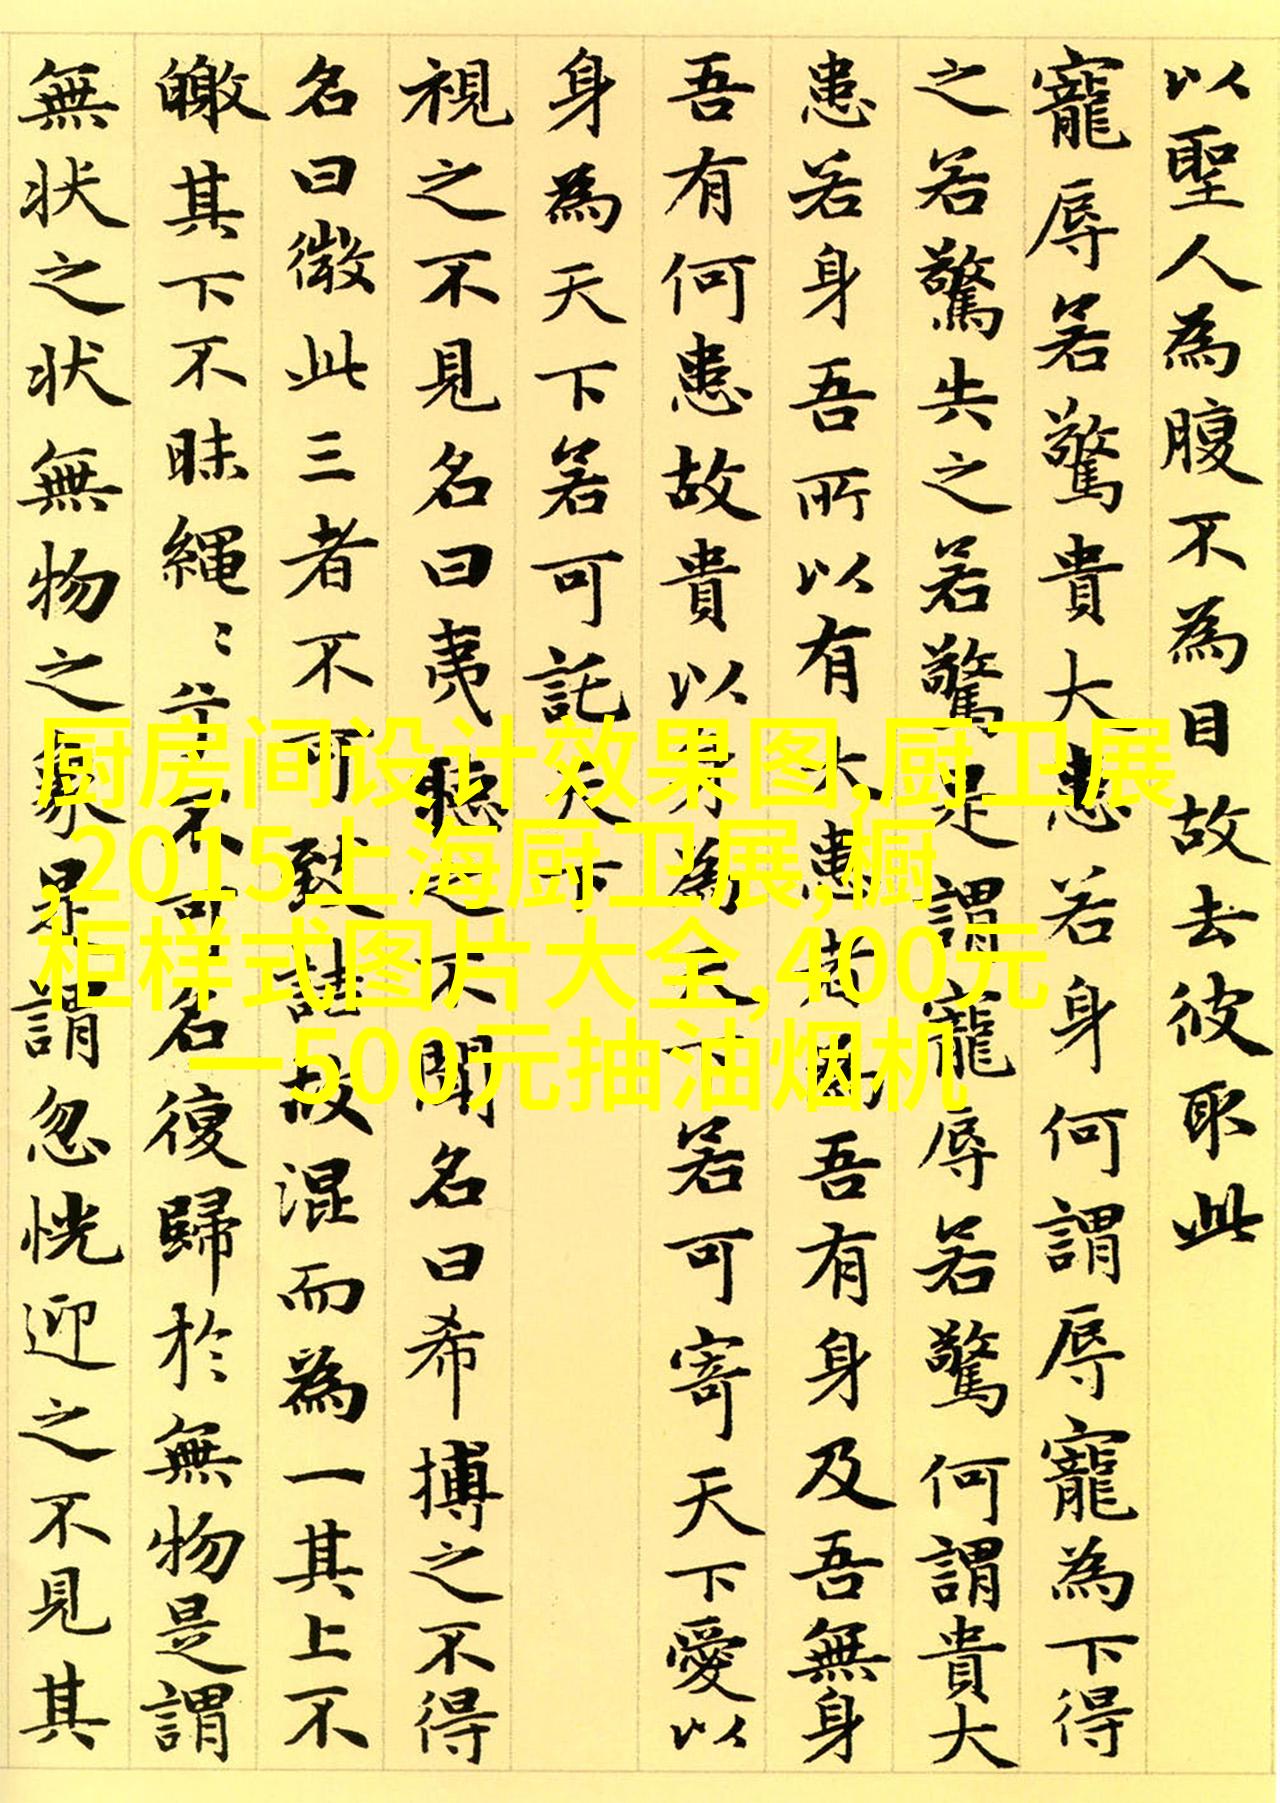 以聖人為腹不為目故去彼取此
寵辱若驚貴大患若身何謂辱寵為下得
之若驚失之若驚是謂寵辱若驚何謂貴大
患若身吾所以有大患者為吾有身及吾無身
吾有何患故貴以身為天下若可寄天下愛以
身為天下若可託天下
視之不見名曰夷聽之不聞名曰希搏之不得
名曰微此三者不可致詰故混而為一其上不
皦其下不昧繩〻兮不可名復歸於無物是謂
無状之状無物之象是謂忽恍迎之不見其
厨房间设计效果图,厨卫展
,2015上海厨卫展,橱
柜样式图片大全,400元
一500元抽油烟机